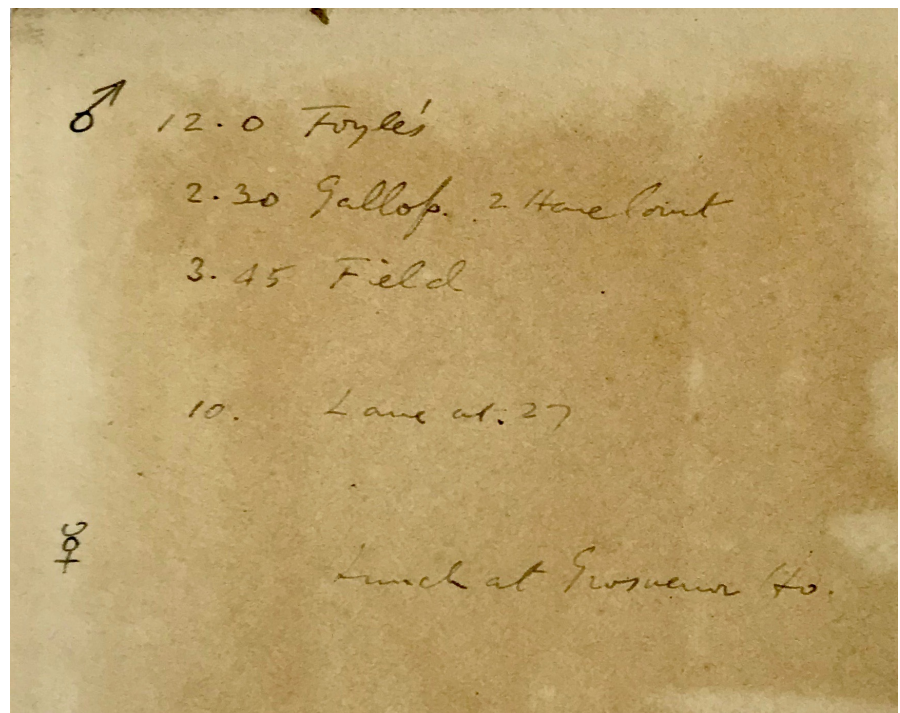 ♂ 12.0 Foyle's
2.30 Gallop. 2 Hare Court
3.45 Field
10. Lane at 27
☿ Lunch at Grosvenor Ho.